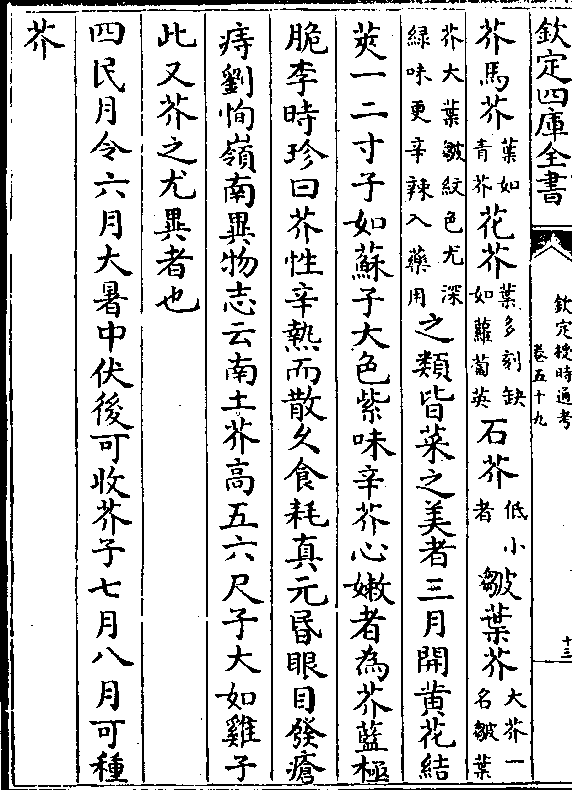 欽定四庫全書
欽定授時通考
卷五十九
十三
芥馬芥葉如青芥花芥葉多刻缺如蘿蔔英石芥低小者皺葉芥大芥一名皺葉
芥大葉皺紋色尤深綠味更辛辣入藥用之類皆菜之美者三月開黃花結
莢一二寸子如蘇子大色紫味辛芥心嫩者為芥藍極
脆李時珍曰芥性辛熱而散久食耗真元昏眼目發瘡
痔劉恂嶺南異物志云南土芥高五六尺子大如雞子
此又芥之尤異者也
四民月令六月大暑中伏後可收芥子七月八月可種
芥